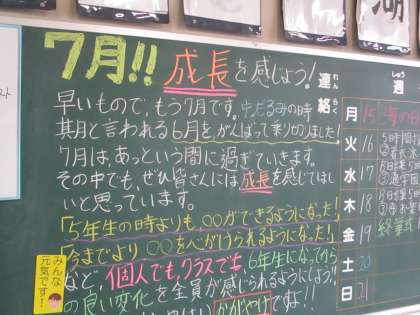 7月!! 成長を感じよう!
早いもので、もう7月です。中だるみの時
期月と言われる6月を、がんばって乗り切りました!
7月は、あっという間に過ぎていきます。
その中でも、ぜひ皆さんには成長を感じてほし
いと思っています。
「5年生の時よりも、○○ができるようになった!」
「今までより○○を心がけられるようになった!」
など、個人でも、クラスでも、6年生になってから
の良い変化を全員が感じられるようにしよう!!
かがやけですよ!!
みんな
元気です!
連絡
れんらく
週
しゅう
月 15
火 16 5時間
水 17
木 18
金 19 終業式
土 20
日 21
湖